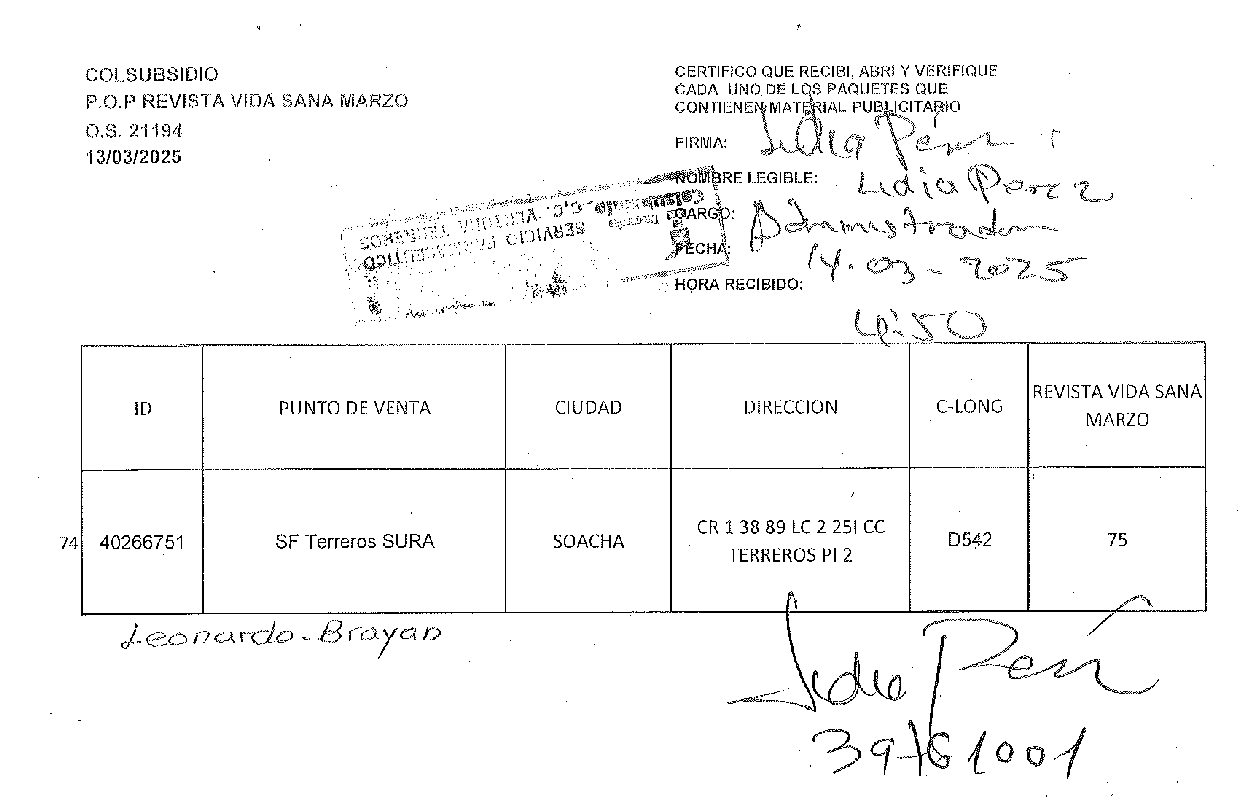 COLSUBSIDIO
P.O.P REVISTA VIDA SANA MARZO
O.S. 21194
13/03/2025
CERTIFICO QUE RECIBI, ABRI Y VERIFIQUE
CADA UNO DE LOS PAQUETES QUE
CONTIENEN MATERIAL PUBLICITARIO
FIRMA: Lidia Pérez
NOMBRE LEGIBLE: Lidia Perez
CARGO: Administrador
FECHA: 14-03-2025
HORA RECIBIDO:
4:50
Colsubsidio, C.C. VENTURA TERREROS
SERVICIO FARMACEUTICO
ID PUNTO DE VENTA CIUDAD DIRECCION C-LONG REVISTA VIDA SANA
MARZO
74 40266751 SF Terreros SURA SOACHA CR 1 38 89 LC 2 25I CC
TERREROS PI 2 D542 75
Leonardo-Brayan
Lidia Pérez